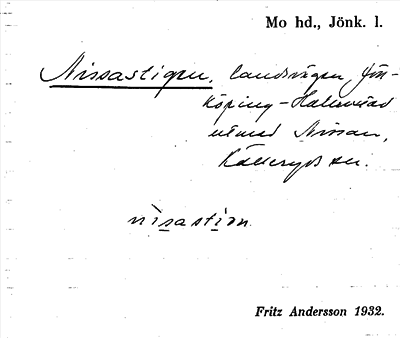 Mo hd., Jönk. l.
Nissastigen, landsvägen Jön-
köping-Halmstad
utmed Nissan,
Källeryds sn.
nìsastíən
Fritz Andersson 1932.